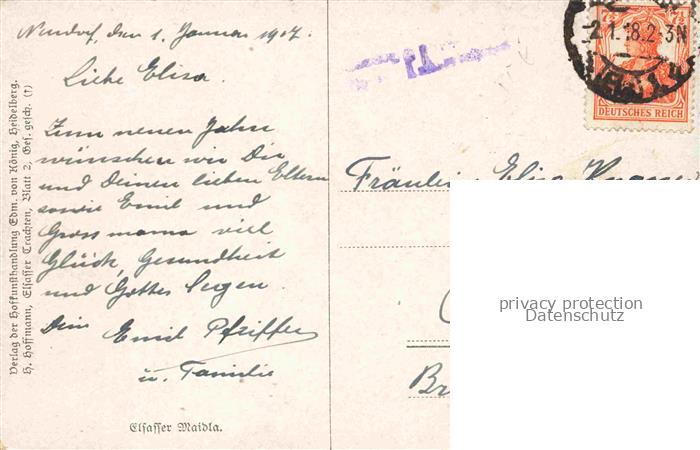 Neudorf, den 1. Januar 1917.
Liebe Elisa.
Zum neuen Jahr
wünschen wir Dir
und Deinen lieben Eltern
sowie Emil und
Grossmama viel
Glück, Gesundheit
und Gottes Segen
Dein Emil Pfeiffer
u. Familie
Elsasser Maidla.
Verlag der Hofkunsthandlung Edm. von König, Heidelberg.
H. Hoffmann, Elsasser Trachten, Blatt 2, Ges. gesch. (†)
7½ 7½
2.1.18.2-3N
DEUTSCHES REICH
Fräulein Elisa
Br
privacy protection
Datenschutz